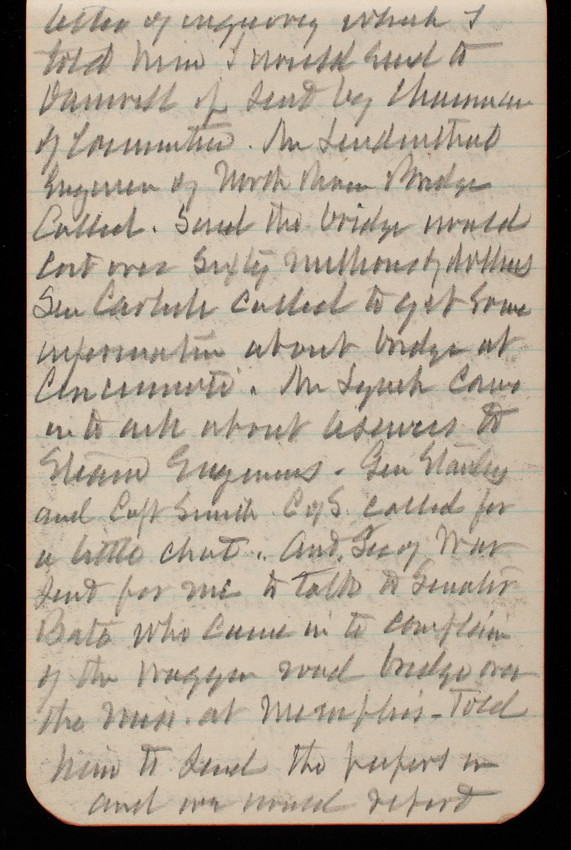 letter of inquiry which I
told him I would send to
if sent by Chairman
of Committee. Mr Lindenthal
Engineer of North River Bridge
Called. Said the bridge would
cost over Sixty millions of dollars
Sen Carlisle called to get some
information about bridge at
Cincinnati. Mr Lynch came
in to ask about licenses to
Steam Engineers. Gen Stanley
and Capt Smith C of S. called for
a little chat. Sec of War
sent for me to talk to Senator
Bate who came in to complain
of the waggon road bridge over
the Miss. at Memphis - Told
him to send the papers in
and we would report